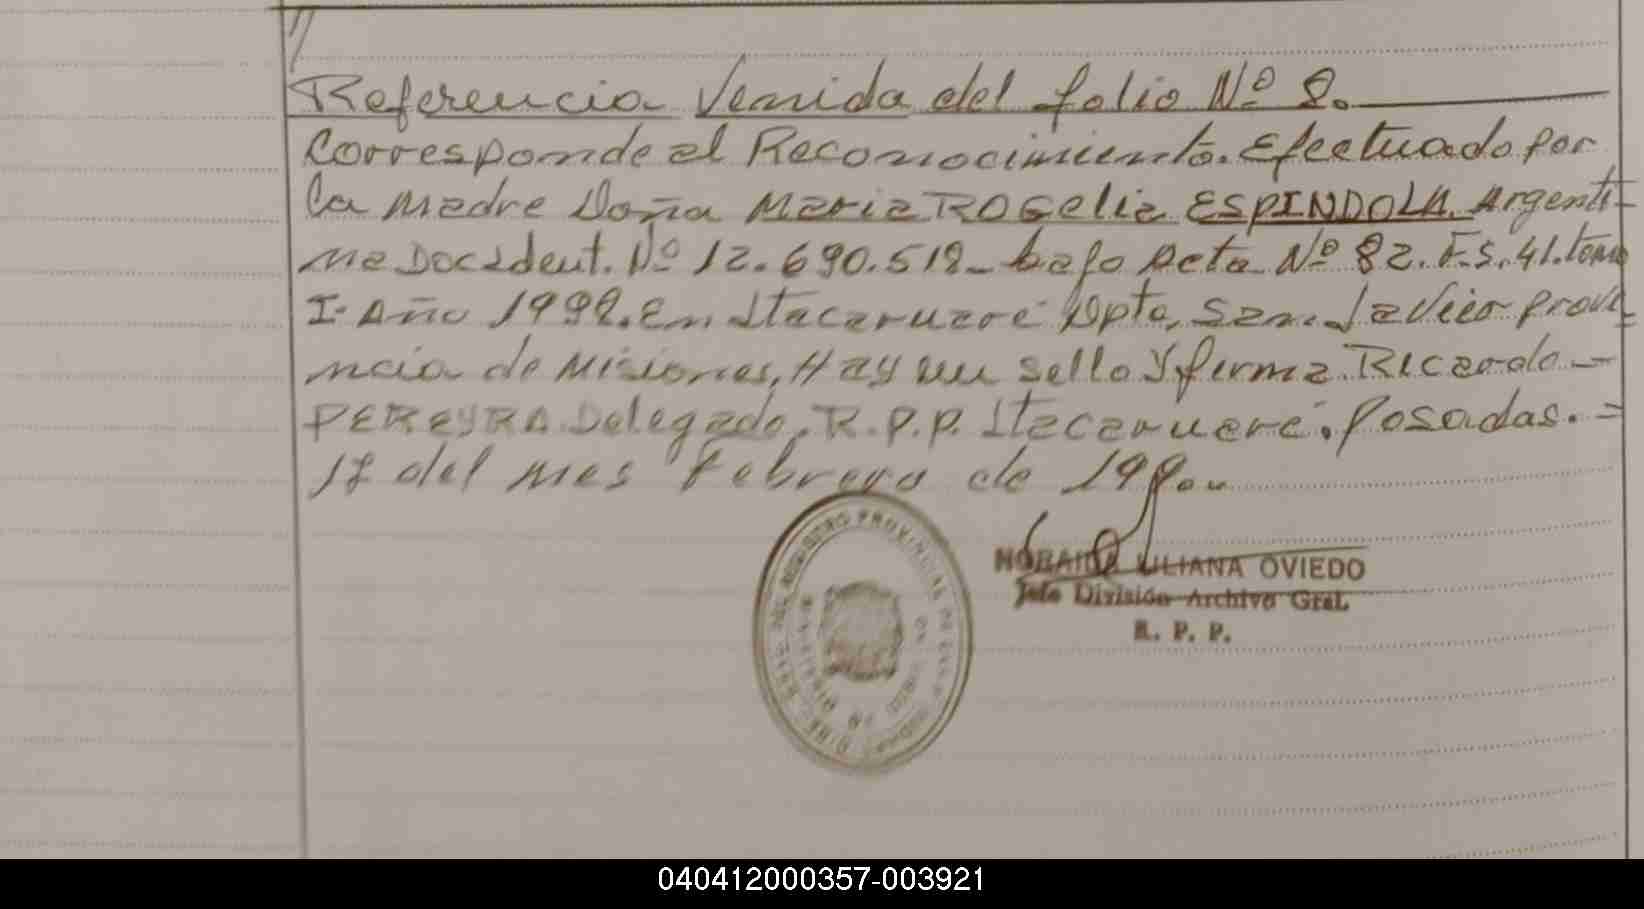 //
Referencia Venida del folio Nº 8.
Corresponde al Reconocimiento. Efectuado por
la Madre Doña Maria ROGelia ESPINDOLA. Argenti-
na Doc. Ident. Nº 12.690.518- bajo Acta Nº 82. F.S. 41. tomo
I- Año 1998. En Itacaruaré Dpto, San. Javier provi-
ncia de Misiones, Hay un sello y firma. Ricardo -
PEREYRA. Delegado, R.P.P. Itacaruaré. Posadas. -
del mes Febrero de
NORAIDA LILIANA OVIEDO
Jefe División Archivo Gral.
R. P. P.
040412000357-003921